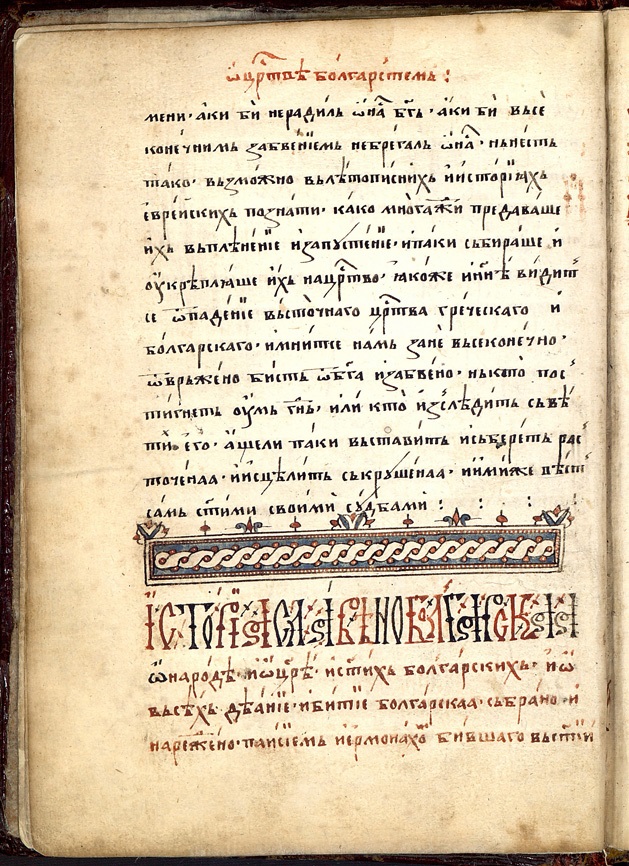 ѿ црⷭ҇твѣ болгарстемь :
мени · аки би нерадиль ѡна бг҃ь · аки би высѐ
конечнимь забвениемь небрегаль ѡна · нынесть
тако · възможно въ лѣтописнихь и историахь
еврейскихь познати · како многажи предаваше
ихь въ плѣнение и запустение · и паки събираше и
оукрѣплꙗше ихь на црⷭ҇тво · ꙗкоже и ннѣ видит
се ѿпадение въсточнаго црⷭ҇тва греческаго и
болгарскаго · и мнитсе намь зане высеконечно ·
ѿврьжено бисть ѿ бг҃а и забвено · нь кьто пос
тигнеть оумь гнⷭ҇ь · или кто изслѣдить съвѣ
ти его · аще ли паки въставить и събереть рас
точенаа · и исцѣлить съкрушенаа · ими же вѣсть
самь ст҃ими своими судбами :
историа славѣноболгарскаа
ѡ народѣ · и ѡ црⷭ҇ѣ · и ст҃ихь болгарскихь · и ѡ
въсѣхь дѣание · и битие болгарскаа · събрано · и
нареждено · паисиемь иермонахѡ бившаго въ ст҃ѣй